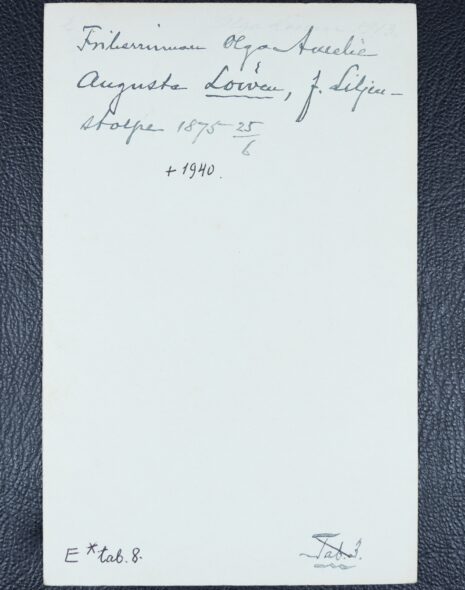 Friherrinnan Olga Aurelie
Augusta Lovén, f. Liljen-
stolpe 1875 25/6
+ 1940.
E * tab. 8.
Tab 3.